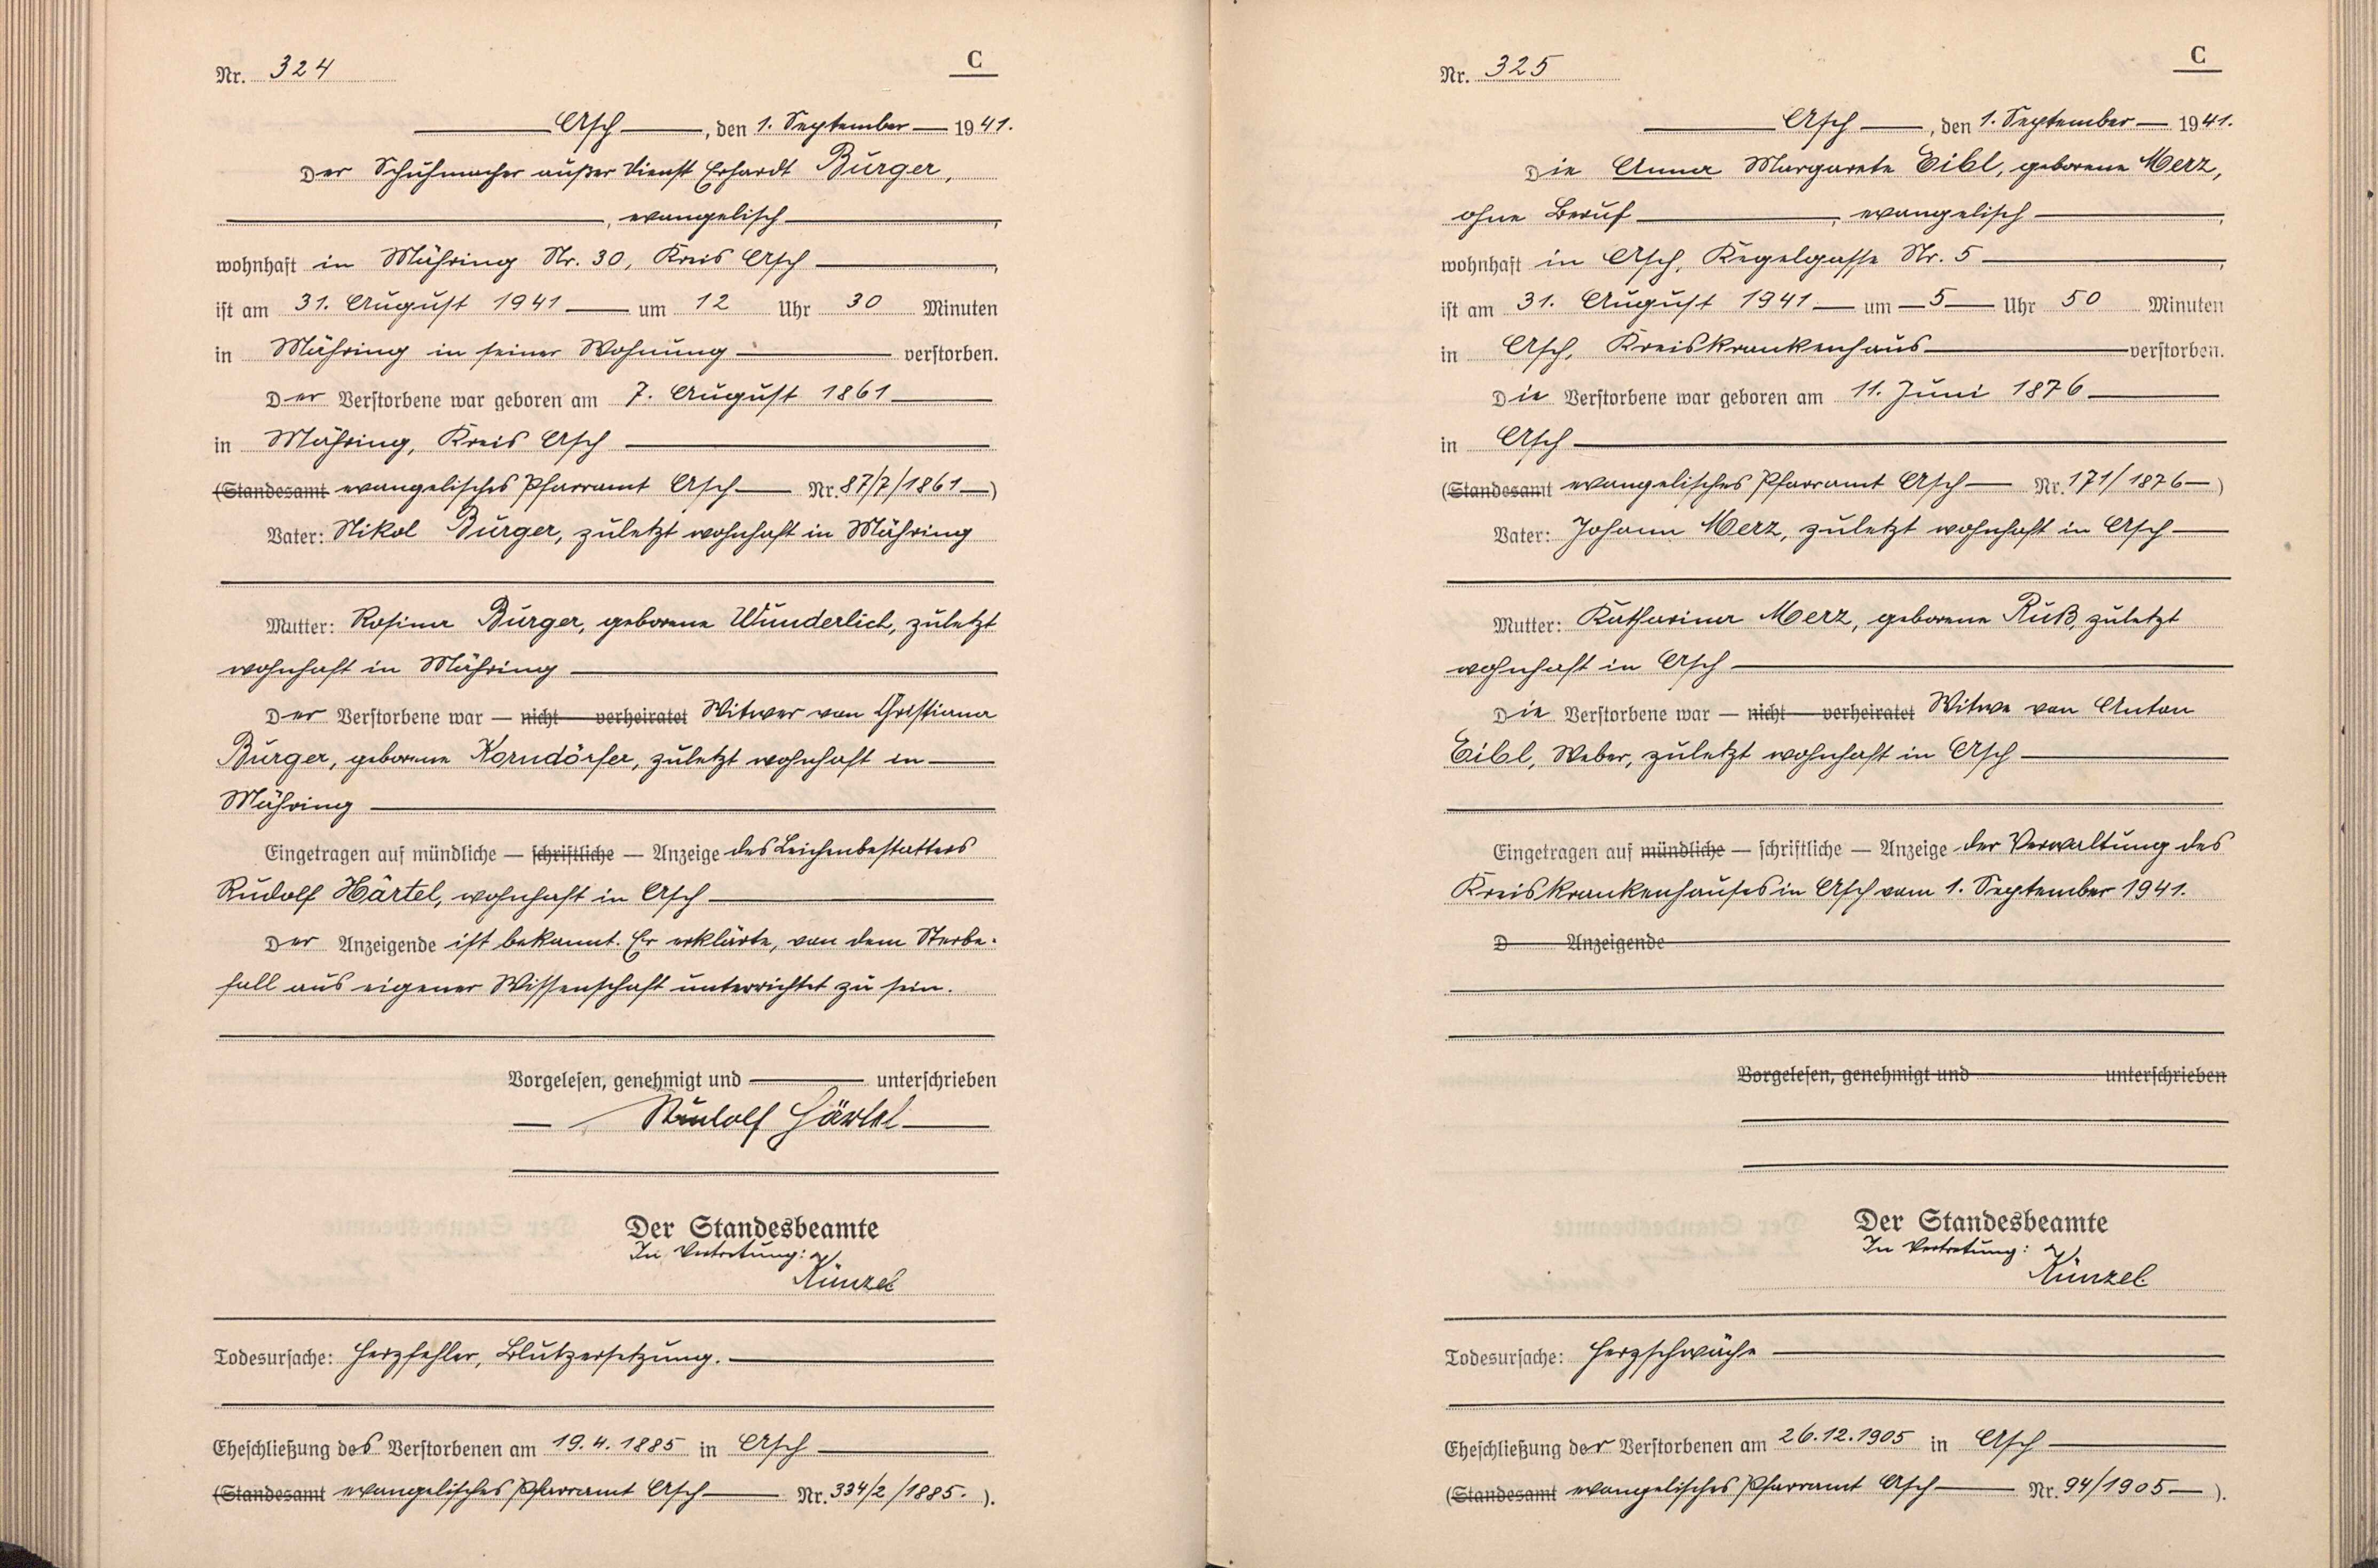 Nr. 324
C
Asch, den 1. September 1941.
Der Schuhmacher außer Dienst Erhardt Burger,
, evangelisch,
wohnhaft in Mähring Nr. 30, Kreis Asch,
ist am 31. August 1941 um 12 Uhr 30 Minuten
in Mähring in seiner Wohnung verstorben.
Der Verstorbene war geboren am 7. August 1861
in Mähring, Kreis Asch
(Standesamt evangelisches Pfarramt Asch Nr. 87/7/1861)
Vater: Nikol Burger, zuletzt wohnhaft in Mähring
Mutter: Rosina Burger, geborene Wunderlich, zuletzt
wohnhaft in Mähring
Der Verstorbene war — nicht — verheiratet Witwer von Christiana
Burger, geborene Korndörfer, zuletzt wohnhaft in
Mähring
Eingetragen auf mündliche — schriftliche — Anzeige des Leichenbestatters
Rudolf Härtel, wohnhaft in Asch
Der Anzeigende ist bekannt. Er erklärte, von dem Sterbe-
fall aus eigener Wissenschaft unterrichtet zu sein.
Vorgelesen, genehmigt und unterschrieben
Rudolf Härtel
Der Standesbeamte
In Vertretung:
Künzel
Todesursache: Herzfehler, Blutzersetzung.
Eheschließung des Verstorbenen am 19.4.1885 in Asch
(Standesamt evangelisches Pfarramt Asch Nr. 334/2/1885. ).
Nr. 325
C
Asch, den 1. September 1941.
Die Anna Margareta Eibl, geborene Merz,
ohne Beruf, evangelisch,
wohnhaft in Asch, Kegelgasse Nr. 5,
ist am 31. August 1941 um 5 Uhr 50 Minuten
in Asch, Kreiskrankenhaus verstorben.
Die Verstorbene war geboren am 11. Juni 1876
in Asch
(Standesamt evangelisches Pfarramt Asch Nr. 171/1876)
Vater: Johann Merz, zuletzt wohnhaft in Asch
Mutter: Katharina Merz, geborene Ruß, zuletzt
wohnhaft in Asch
Die Verstorbene war — nicht — verheiratet Witwe von Anton
Eibl, Weber, zuletzt wohnhaft in Asch
Eingetragen auf mündliche — schriftliche — Anzeige der Verwaltung des
Kreiskrankenhauses in Asch vom 1. September 1941.
D Anzeigende
Vorgelesen, genehmigt und unterschrieben
Der Standesbeamte
In Vertretung:
Künzel
Todesursache: Herzschwäche
Eheschließung der Verstorbenen am 26.12.1905 in Asch
(Standesamt evangelisches Pfarramt Asch Nr. 94/1905 ).